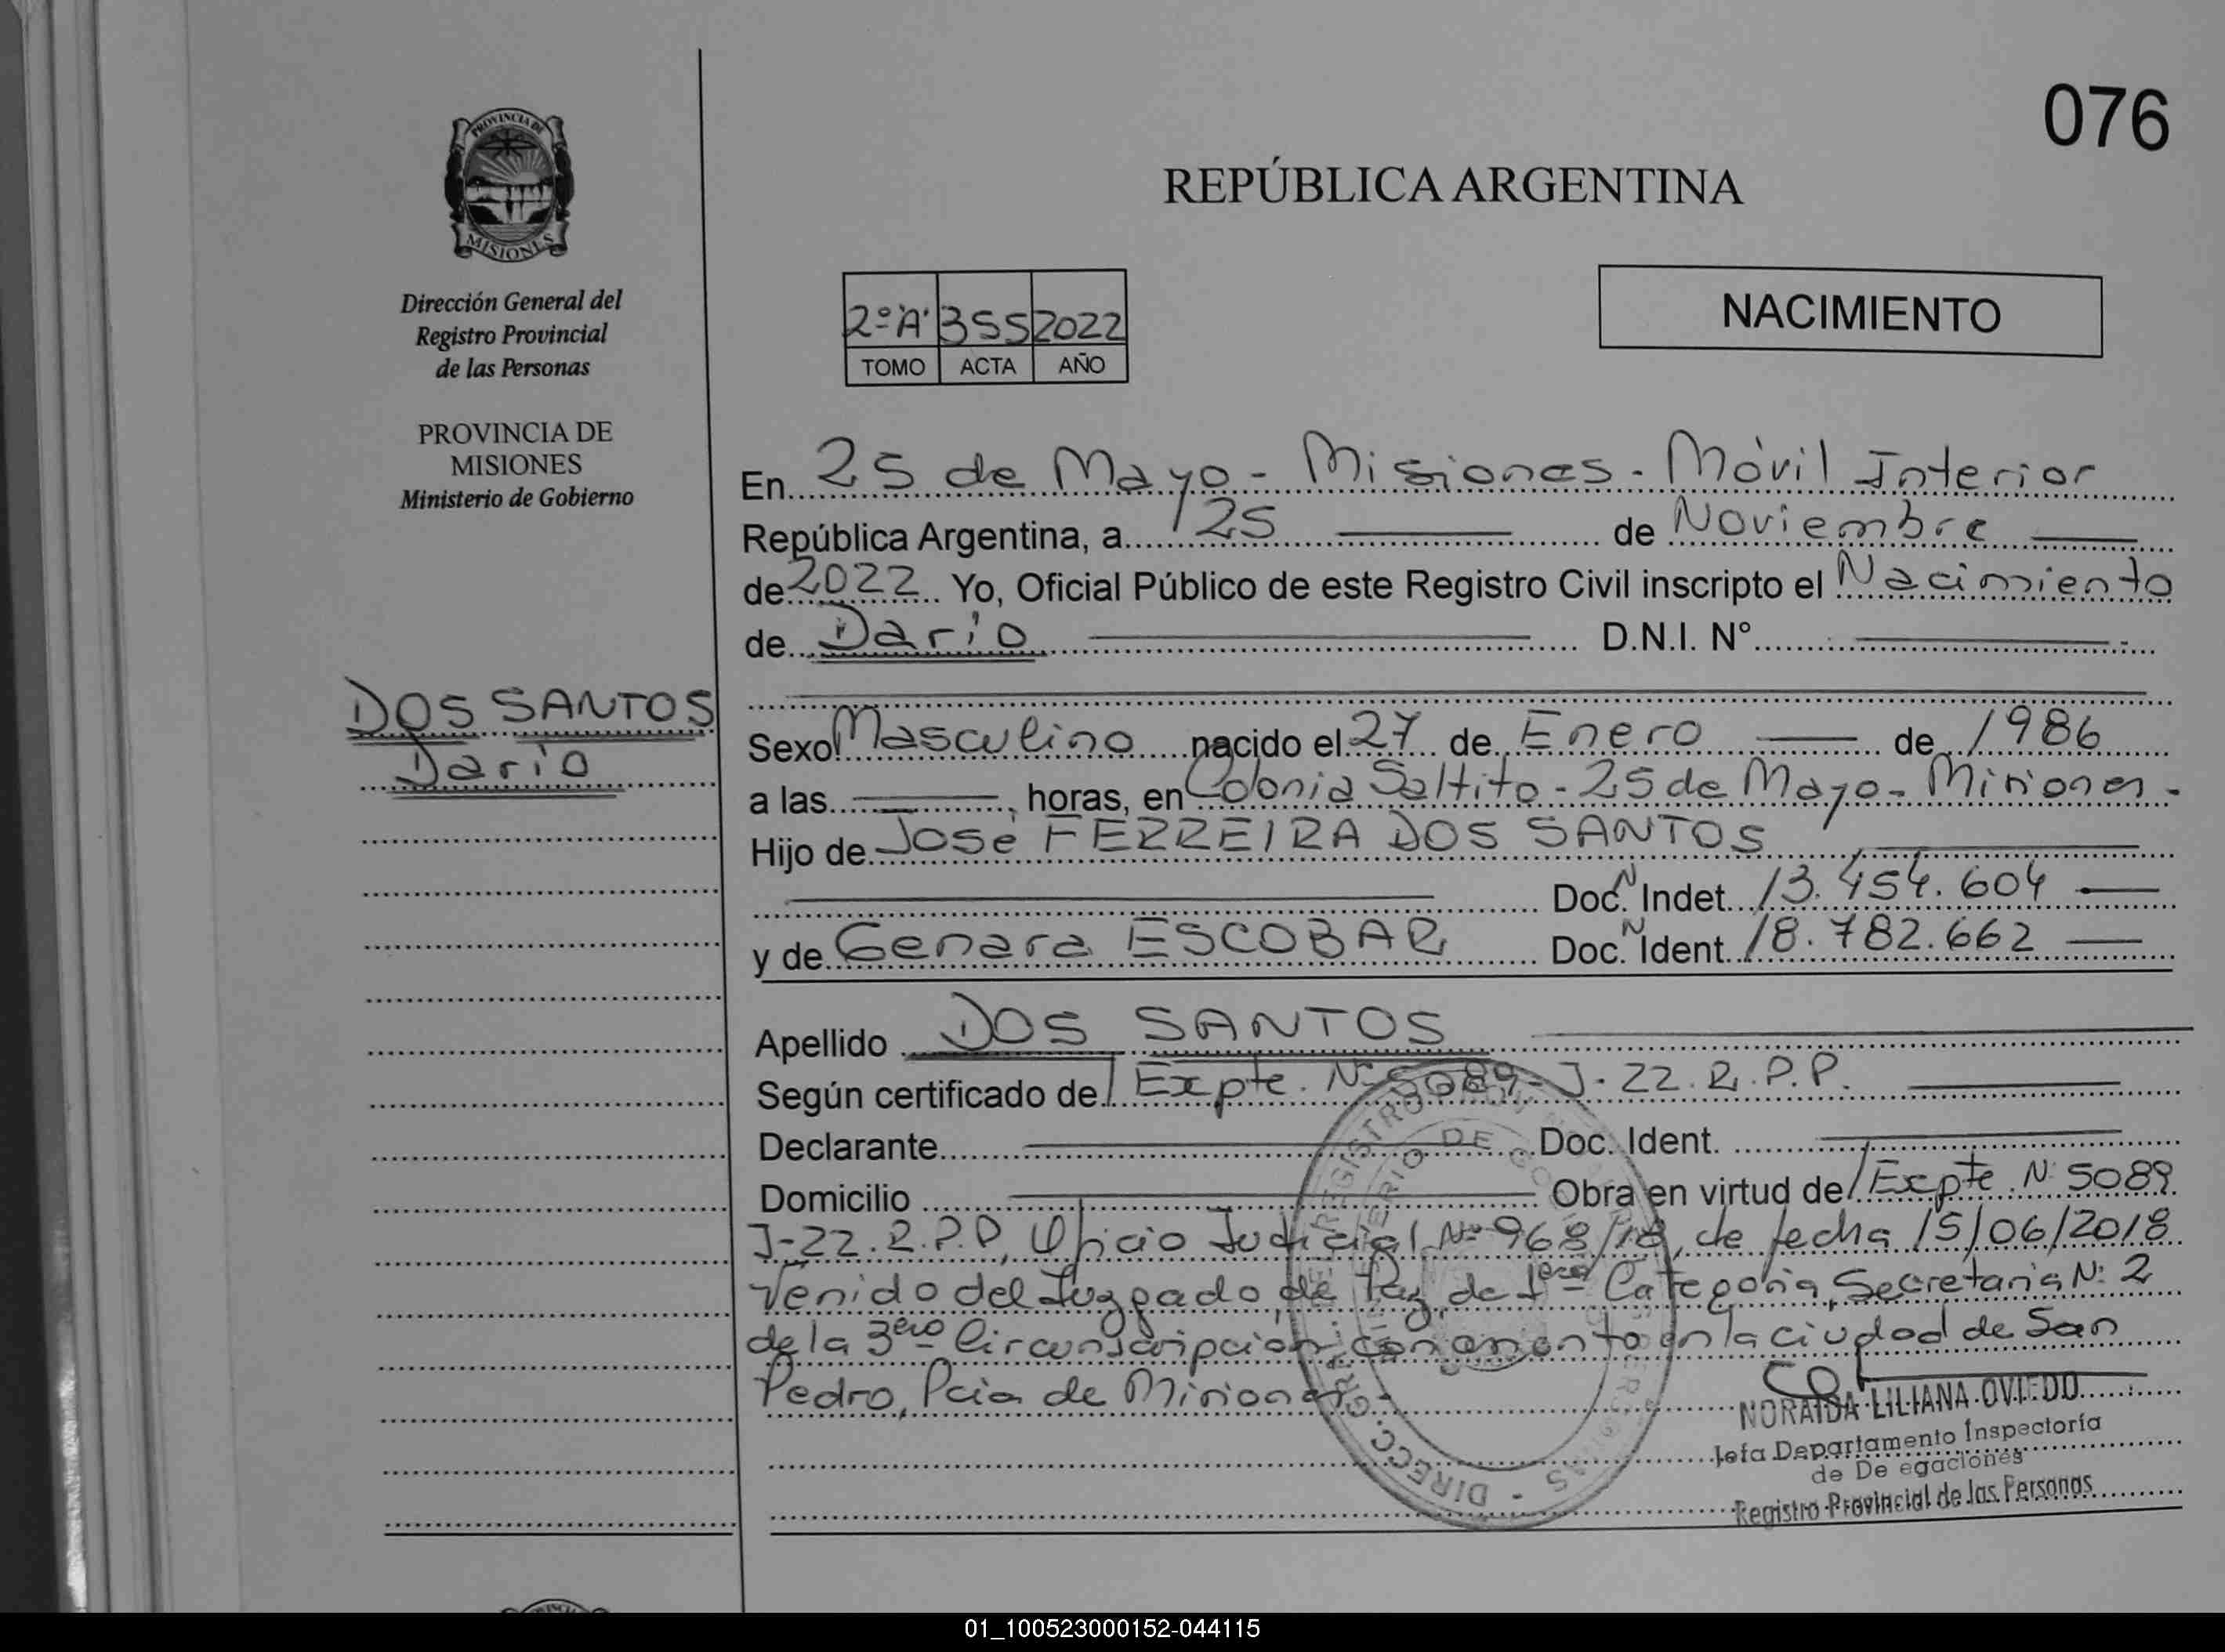 076
PROVINCIA DE
MISIONES
Dirección General del
Registro Provincial
de las Personas
PROVINCIA DE
MISIONES
Ministerio de Gobierno
DOS SANTOS
Dario
REPÚBLICA ARGENTINA
2º "A" 355 2022
TOMO ACTA AÑO
NACIMIENTO
En 25 de Mayo - Misiones - Móvil Interior
República Argentina, a 25 de Noviembre
de 2022 Yo, Oficial Público de este Registro Civil inscripto el Nacimiento
de Dario D.N.I. N°
Sexo Masculino nacido el 27 de Enero de 1986
a las , horas, en Colonia Saltito - 25 de Mayo - Misiones -
Hijo de José FERREIRA DOS SANTOS
Doc. N Indet. 13.454.604
y de Genara ESCOBAR Doc. N Ident. 18.782.662
Apellido DOS SANTOS
Según certificado de Expte. Nº 5089 - J-22.R.P.P.
Declarante Doc. Ident.
Domicilio Obra en virtud de Expte. N: 5089
J-22.R.P.P, Oficio Judicial Nº 968/18, de fecha 15/06/2018
Venido del Juzgado de Paz de 1era Categoria, Secretaria N: 2
de la 3era Circunscripción, con asiento en la ciudad de San
Pedro, Pcia de Misiones.-
NORAIDA LILIANA OVIEDO
Jefa Departamento Inspectoría
de De egaciones
Registro Provincial de las Personas
01_100523000152-044115